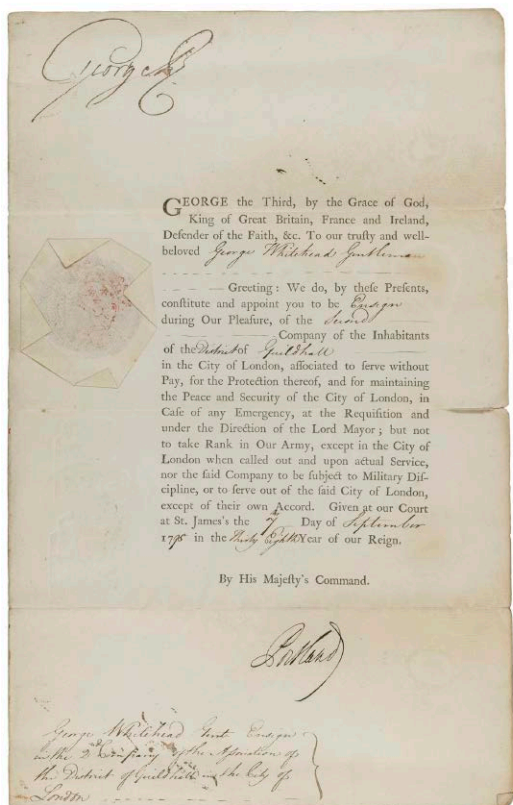 George R
GEORGE the Third, by the Grace of God,
King of Great Britain, France and Ireland,
Defender of the Faith, &c. To our trusty and well-
beloved George Whitehead Gentleman
Greeting: We do, by these Presents,
constitute and appoint you to be Ensign
during Our Pleasure, of the Second
Company of the Inhabitants
of the District of Guildhall
in the City of London, associated to serve without
Pay, for the Protection thereof, and for maintaining
the Peace and Security of the City of London, in
Case of any Emergency, at the Requisition and
under the Direction of the Lord Mayor; but not
to take Rank in Our Army, except in the City of
London when called out and upon actual Service,
nor the said Company to be subject to Military Dis-
cipline, or to serve out of the said City of London,
except of their own Accord. Given at our Court
at St. James's the Day of September
179 in the Thirty Eighth Year of our Reign.
By His Majesty's Command.
Portland
George Whitehead Gent Ensign
in the 2d Company of the Association of
the District of Guildhall in the City of
London